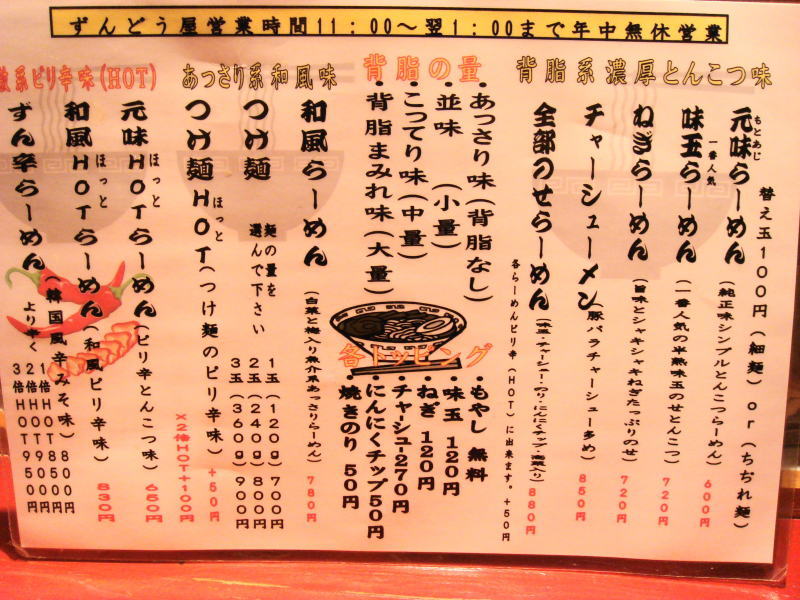 ずんどう屋営業時間11:00〜翌1:00まで年中無休営業
背脂系濃厚とんこつ味
替え玉100円(細麺)or(ちぢれ麺)
元味らーめん(純正味シンプルとんこつらーめん)600円
もとあじ
味玉らーめん(一番人気の半熟味玉のせとんこつ)720円
一番人気
ねぎらーめん(旨味とシャキシャキねぎたっぷりのせ)720円
チャーシューメン(豚バラチャーシュー多め)850円
全部のせらーめん 880円
各らーめんピリ辛(HOT)に出来ます。+50円
背脂の量
・あっさり味(背脂なし)
・並味(小量)
・こってり味(中量)
・背脂まみれ味(大量)
各トッピング
・もやし 無料
・味玉 120円
・ねぎ 120円
・チャーシュー270円
・にんにくチップ50円
・焼きのり 50円
あっさり系和風味
和風らーめん(白菜と梅入り魚介系あっさりらーめん)780円
つけ麺
麺の量を
選んで下さい
1玉(120g)700円
2玉(240g)800円
3玉(360g)900円
つけ麺HOT(つけ麺のピリ辛味)+50円
ほっと
×2倍HOT+100円
系ピリ辛味(HOT)
元味HOTらーめん(ピリ辛とんこつ味)650円
ほっと
和風HOTらーめん(和風ピリ辛味)830円
ほっと
ずん辛らーめん(韓国風辛みそ味)800円
より辛く
1倍HOT850円
2倍HOT900円
3倍HOT950円